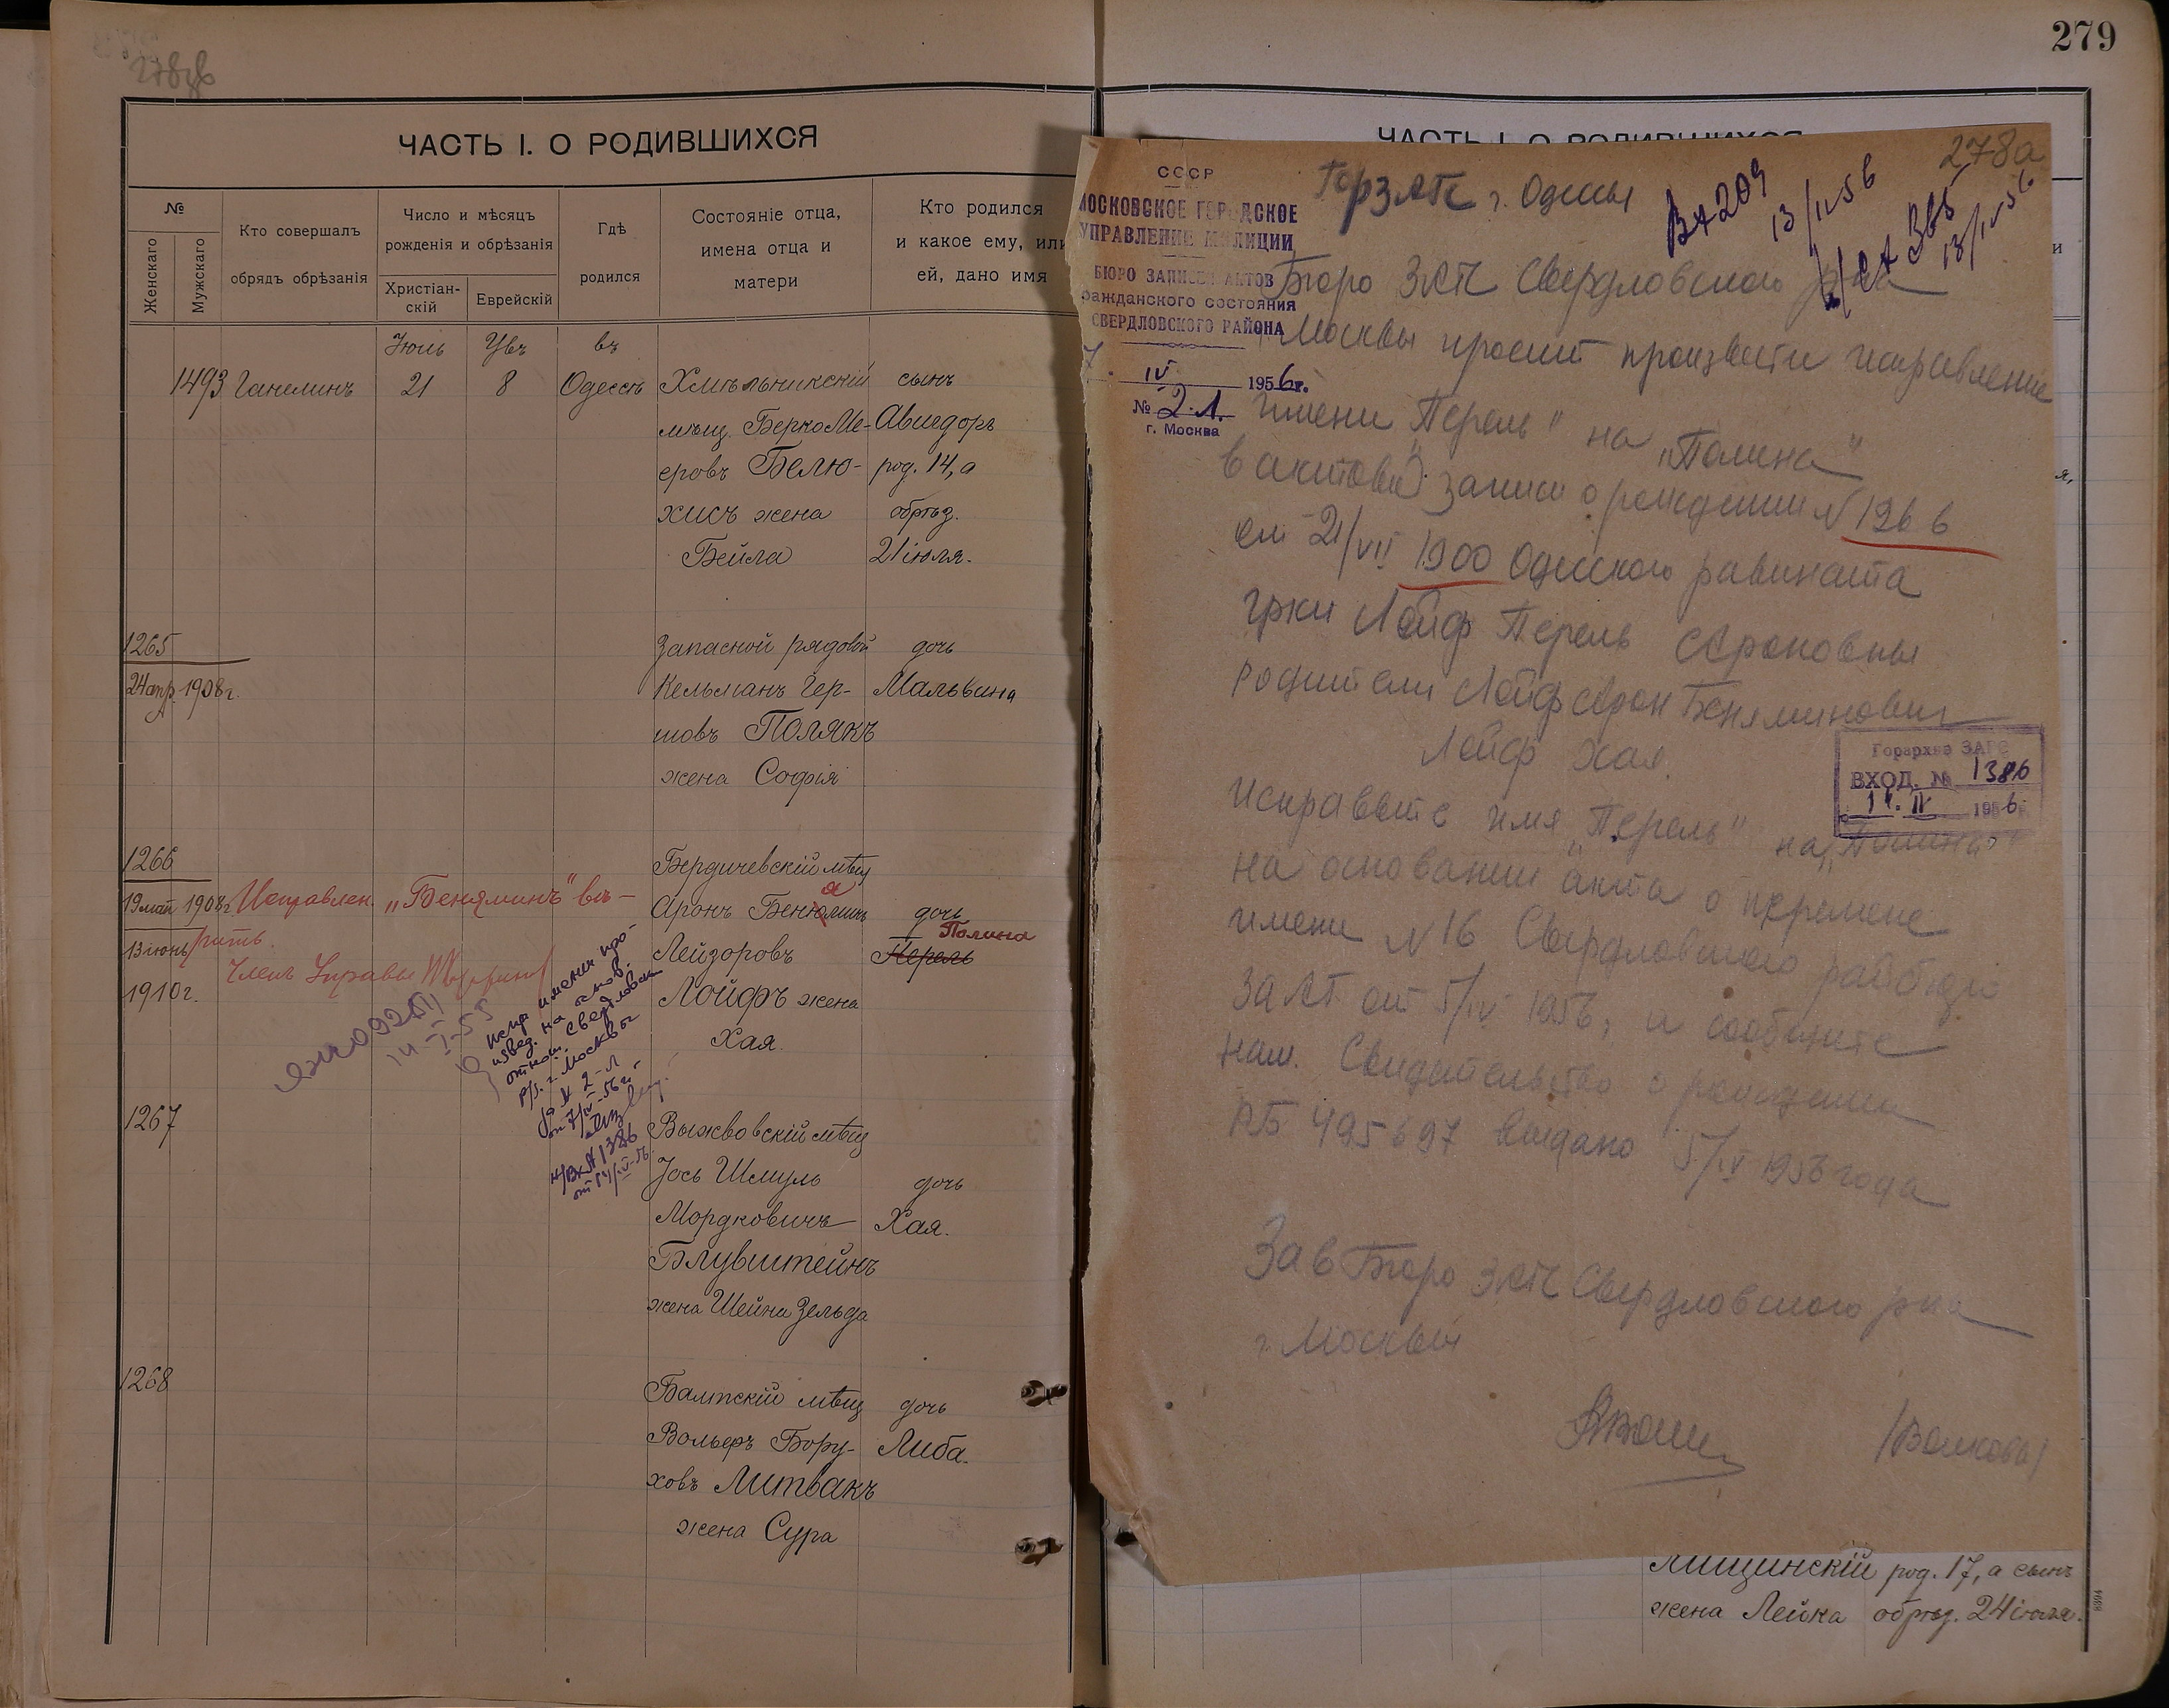 278об
279
ЧАСТЬ I. О РОДИВШИХСЯ
№
Женскаго
Мужскаго
Кто совершалъ
обрядъ обрѣзанія
Число и мѣсяцъ
рожденія и обрѣзанія
Христіан-
скій
Еврейскій
Гдѣ
родился
Состояніе отца,
имена отца и
матери
Кто родился
и какое ему, или
ей, дано имя
Іюль
въ
1493
Ганелинъ
21
8
Одессѣ
Хмѣльникскій
мѣщ. Берко Ме-
еровъ Белю-
хисъ жена
Бейла
сынъ
Авигдоръ
род. 14, а
обрѣз.
21 іюля.
1265
24 апр. 1908 г.
Запасной рядовой
Кельманъ Гер-
шовъ Полякъ
жена Софія
дочь
Мальвина
1266
19 май 1908 г.
13 іюнь
1910 г.
Исправлен. „Беняминъ" вѣ-
рить.
Членъ Управы
Бердичевскій мѣщ
Аронъ Бенюминъ
я
Лейзоровъ
Лойфъ жена
Хая
дочь
Полина
Перель
14-I-55
испр имени про-
извед. на основ.
отнош. Свердловск
р/б. г. Москвы
за № 2-Л
от 7/IV-56 г.
н/Вх № 1386
от 14/IV-56.
1267
Выжвовскій мѣщ
Іось Шмуль
Мордковичъ
Блувштейнъ
жена Шейна Зельда
дочь
Хая.
1268
Балтскій мѣщ
Вольфъ Бору-
ховъ Литвакъ
жена Сура
дочь
Либа.
ЧАСТЬ I. О РОДИВШИХСЯ
278а
СССР
МОСКОВСКОЕ ГОРОДСКОЕ
УПРАВЛЕНИЕ МИЛИЦИИ
БЮРО ЗАПИСЕЙ АКТОВ
гражданского состояния
СВЕРДЛОВСКОГО РАЙОНА
7. IV 1956 г.
№ 2-Л.
г. Москва
ГорЗАГС г. Одессы
Вх 209
13/IV 56
365
13/IV 56
Бюро ЗАГС Свердловского р-на
г Москвы просит произвести исправление
имени „Перель" на „Полина"
в актовой записи о рождении N 1266
от 21/VII 1900 Одесского равината
гр-ки Лойф Перель Ароновны
родители Лойф Арон Беняминович
Лойф Хая.
Исправьте имя „Перель" на „Полина"
на основании акта о перемене
имени N 16 Свердловского райбюро
ЗАГС от 5/IV 1956, и сообщите
нам. Свидетельство о рождении
РБ 495697 выдано 5/IV 1956 года
Горархив ЗАГС
ВХОД. № 1386
14. IV 1956.
Зав Бюро ЗАГС Свердловского р-на
г. Москвы
/Волкова/
Лищинскій
род. 17, а сынъ
жена Лейка
обрѣз. 24 іюля.
8394